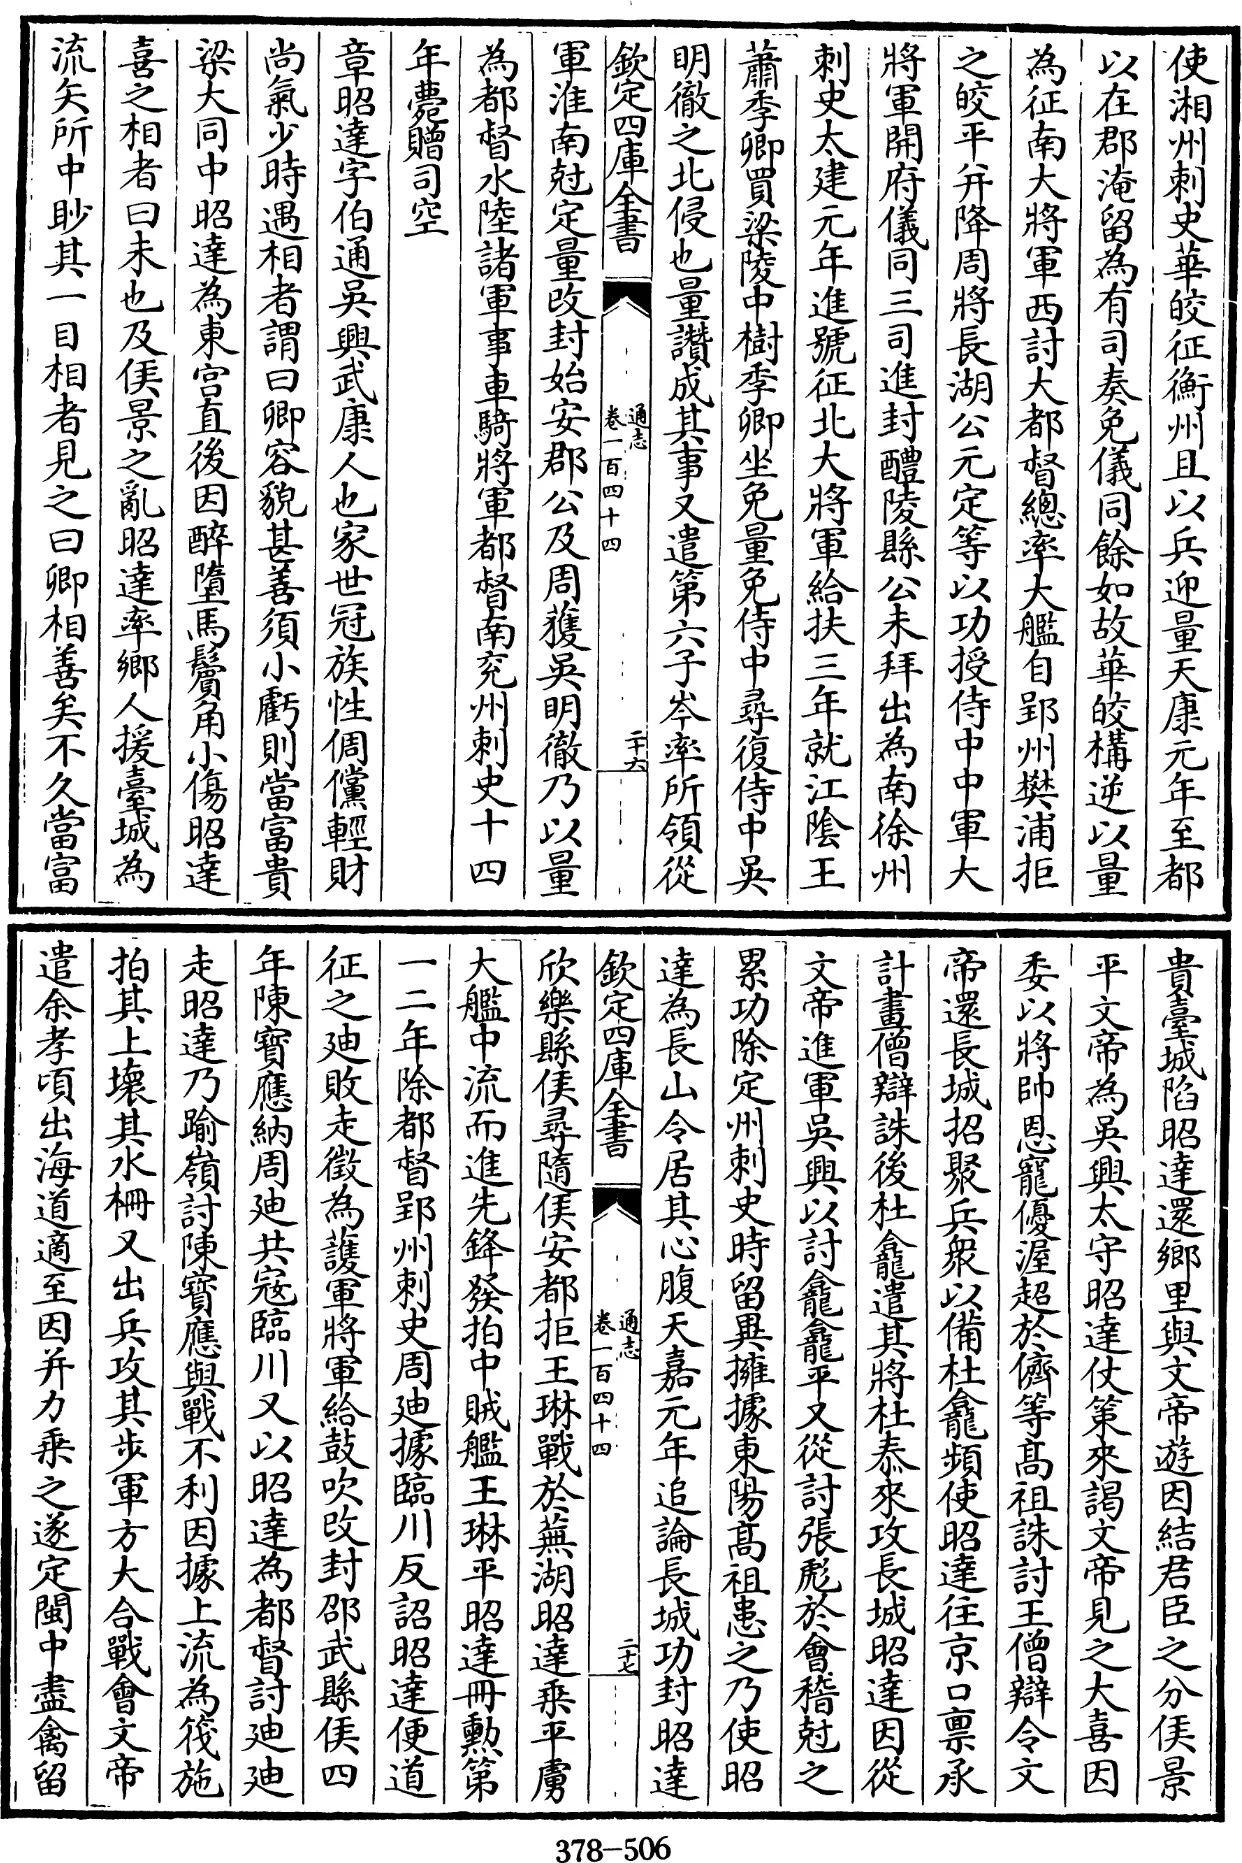 使湘州刺史華皎征衡州且以兵迎量天康元年至都
以在郡淹留為有司奏免儀同餘如故華皎搆逆以量
為征南大將軍西討大都督總率大艦自郢州樊浦拒
之皎平并降周將長湖公元定等以功授侍中中軍大
將軍開府儀同三司進封醴陵縣公未拜出為南徐州
刺史太建元年進號征北大將軍給扶三年就江陰王
蕭季卿買梁陵中樹季卿坐免量免侍中尋復侍中吳
明徹之北侵也量讚成其事又遣第六子岑率所領從
欽定四庫全書
通志
卷一百四十四
二十六
軍淮南尅定量改封始安郡公及周獲吳明徹乃以量
為都督水陸諸軍事車騎將軍都督南兖州刺史十四
年薨贈司空
章昭達字伯通吳興武康人也家世冠族性倜儻輕財
尚氣少時遇相者謂曰卿容貌甚善須小虧則當富貴
梁大同中昭達為東宮直後因醉墮馬鬢角小傷昭達
喜之相者曰未也及侯景之亂昭達率鄉人援臺城為
流矢所中眇其一目相者見之曰卿相善矣不久當富
貴臺城陷昭達還鄉里與文帝遊因結君臣之分侯景
平文帝為吳興太守昭達仗策來謁文帝見之大喜因
委以將帥恩寵優渥超於儕等髙祖誅討王僧辯令文
帝還長城招聚兵衆以備杜龕頻使昭達往京口禀承
計畫僧辯誅後杜龕遣其將杜泰來攻長城昭達因從
文帝進軍吳興以討龕龕平又從討張彪於會稽尅之
累功除定州刺史時留異擁據東陽髙祖患之乃使昭
達為長山令居其心腹天嘉元年追論長城功封昭達
欽定四庫全書
通志
卷一百四十四
二十七
欣樂縣侯尋隨侯安都拒王琳戰於蕪湖昭達乘平虜
大艦中流而進先鋒發拍中賊艦王琳平昭達冊勲第
一二年除都督郢州刺史周迪據臨川反詔昭達便道
征之迪敗走徵為護軍將軍給鼓吹改封邵武縣侯四
年陳寳應納周迪共宼臨川又以昭達為都督討迪迪
走昭達乃踰嶺討陳寳應與戰不利因據上流為筏施
拍其上壞其水柵又出兵攻其步軍方大合戰會文帝
遣余孝頃出海道適至因并力乘之遂定閩中盡禽留
378-506